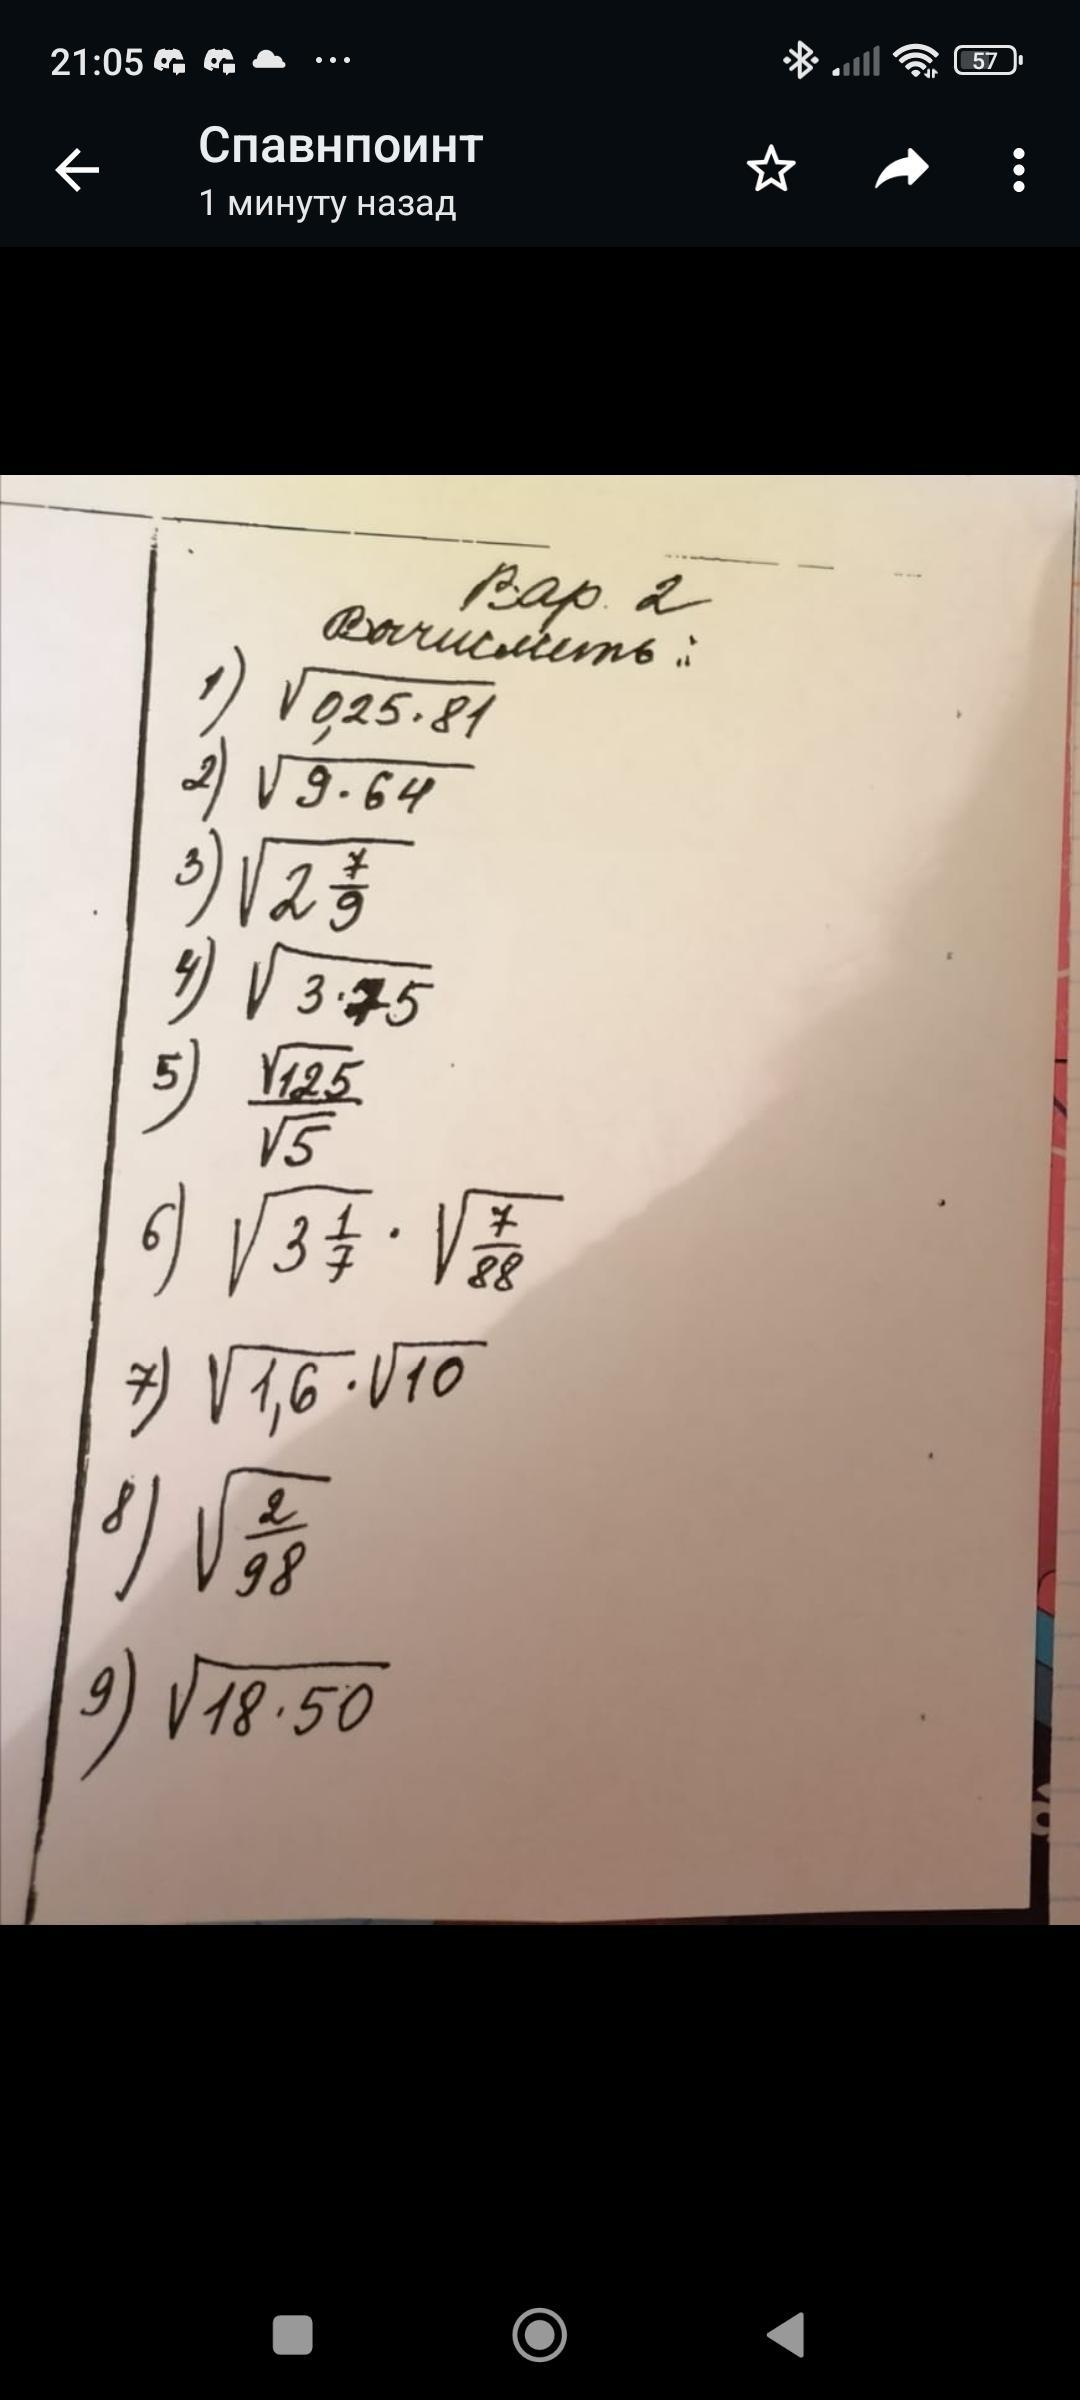 21:05 ... 57
Спавнпоинт
1 минуту назад
Вар. 2
Вычислить:
1) √(0,25·81)
2) √(9·64)
3) √(2 7/9)
4) √(3·75)
5) √125/√5
6) √(3 1/7) · √(7/88)
7) √1,6 · √10
8) √(2/98)
9) √(18·50)